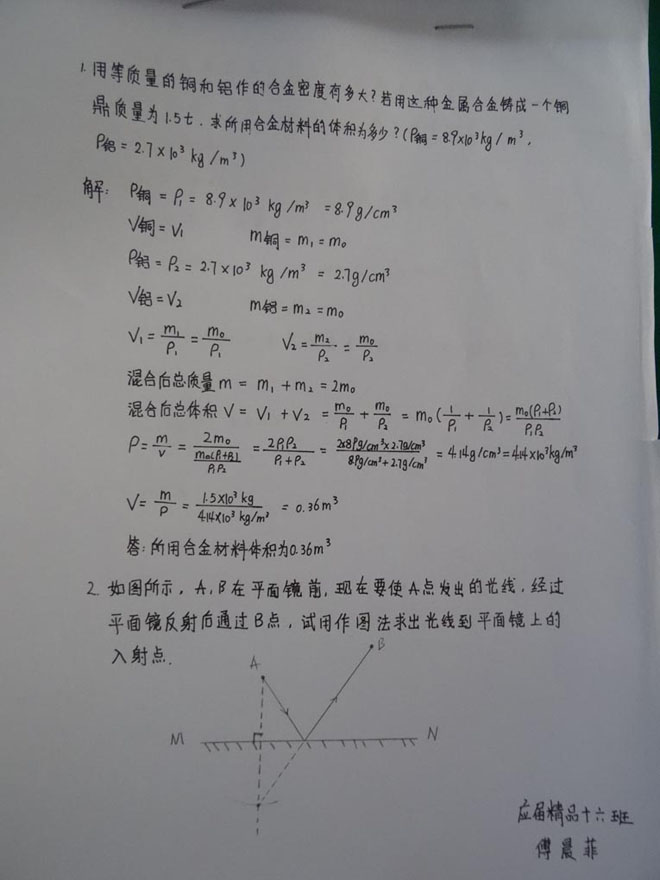 1. 用等质量的铜和铝作的合金密度有多大?若用这种金属合金铸成一个铜
鼎质量为1.5t.求所用合金材料的体积为多少?(ρ铜=8.9×10³kg/m³,
ρ铝=2.7×10³kg/m³)
解: ρ铜=ρ₁=8.9×10³ kg/m³=8.9g/cm³
V铜=V₁ m铜=m₁=m₀
ρ铝=ρ₂=2.7×10³ kg/m³=2.7g/cm³
V铝=V₂ m铝=m₂=m₀
V₁=m₁/ρ₁=m₀/ρ₁ V₂=m₂/ρ₂=m₀/ρ₂
混合后总质量m=m₁+m₂=2m₀
混合后总体积V=V₁+V₂=m₀/ρ₁+m₀/ρ₂=m₀(1/ρ₁+1/ρ₂)=m₀(ρ₁+ρ₂)/ρ₁ρ₂
ρ=m/v=2m₀/(m₀(ρ₁+ρ₂)/ρ₁ρ₂)=2ρ₁ρ₂/(ρ₁+ρ₂)=(2×8.9g/cm³×2.7g/cm³)/(8.9g/cm³+2.7g/cm³)=4.14g/cm³=4.14×10³kg/m³
V=m/ρ=(1.5×10³kg)/(4.14×10³kg/m³)=0.36m³
答:所用合金材料体积为0.36m³
2. 如图所示,A,B在平面镜前,现在要使A点发出的光线,经过
平面镜反射后通过B点,试用作图法求出光线到平面镜上的
入射点.
B
A
M N
应届精品十六班
傅晨菲